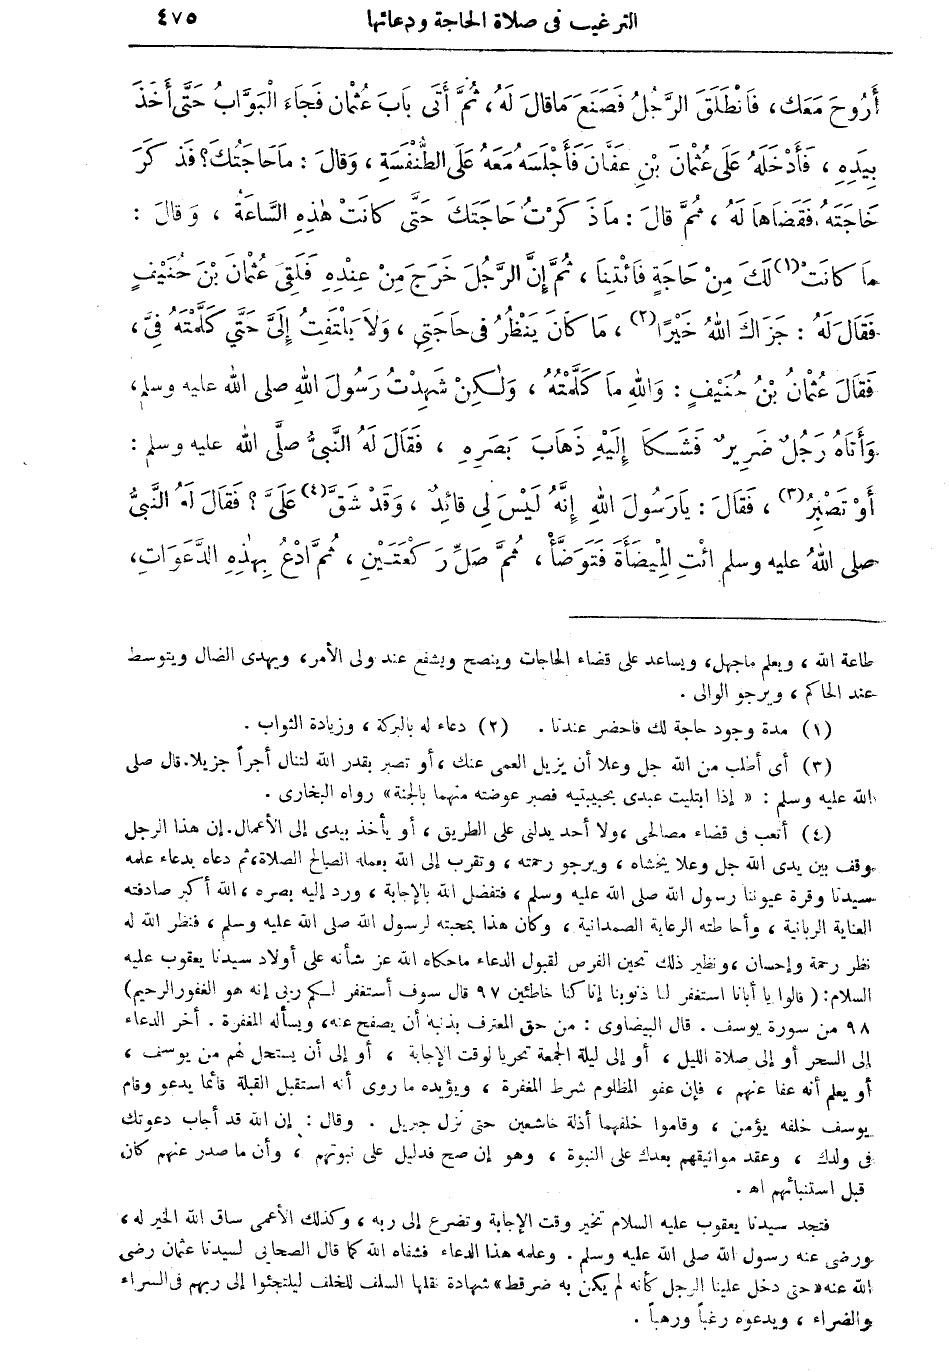 الترغيب فى صلاة الحاجة ودعائها ٤٧٥
أَرُوحَ مَعَك، فَانْطَلَقَ الرَّجُلُ فَصَنَعَ مَاقَالَ لَهُ، ثُمَّ أَتَى بَابَ عُثْمَانَ فَجَاءَ الْبَوَّابُ حَتَّى أَخَذَ
بِيَدِهِ ، فَأَدْخَلَهُ عَلَى عُثْمَانَ بْنِ عَفَّانَ فَأَجْلَسَهُ مَعَهُ عَلَى الطُّنْفُسَةِ ، وَقَالَ : مَاحَاجَتُكَ؟ فَذَكَرَ
حَاجَتَهُ فَقَضَاهَا لَهُ ، ثُمَّ قَالَ : مَاذَكَرْتُ حَاجَتَكَ حَتَّى كَانَتْ هٰذِهِ السَّاعَةُ ، وَقَالَ :
مَا كَانَتْ (١) لَكَ مِنْ حَاجَةٍ فَائْتِنَا ، ثُمَّ إِنَّ الرَّجُلَ خَرَجَ مِنْ عِنْدِهِ فَلَقِىَ عُثْمَانَ بْنَ حُنَيْفٍ
فَقَالَ لَهُ : جَزَاكَ اللهُ خَيْرًا (٢) ، مَا كَانَ يَنْظُرُ فى حَاجَتِى ، وَلَا يَلْتَفِتُ إِلَىَّ حَتَّى كَلَّمْتَهُ فِىَّ ،
فَقَالَ عُثْمَانُ بْنُ حُنَيْفٍ : وَاللهِ مَا كَلَّمْتُهُ ، وَلٰكِنْ شَهِدْتُ رَسُولَ اللهِ صلى الله عليه وسلم،
وَأَتَاهُ رَجُلٌ ضَرِيرٌ فَشَكَا إِلَيْهِ ذَهَابَ بَصَرِهِ ، فَقَالَ لَهُ النَّبِىُّ صلَّى الله عليه وسلم :
أَوْ تَصْبِرُ (٣) ، فَقَالَ : يَارَسُولَ اللهِ إِنَّهُ لَيْسَ لِى قَائِدٌ ، وَقَدْ شَقَّ (٤) عَلَىَّ ؟ فَقَالَ لَهُ النَّبِىُّ
صلى اللهُ عليه وسلم ائْتِ الْمِيضَأَةَ فَتَوَضَّأْ ، ثُمَّ صَلِّ رَكْعَتَيْنِ ، ثُمَّ ادْعُ بِهٰذِهِ الدَّعَوَاتِ،
طاعة الله ، ويعلم ماجهل، ويساعد على قضاء الحاجات وينصح ويشفع عند ولى الأمر، ويهدى الضال ويتوسط
عند الحاكم ، ويرجو الوالى .
(١) مدة وجود حاجة لك فاحضر عندنا . (٢) دعاء له بالبركة ، وزيادة الثواب .
(٣) أى أطلب من الله جل وعلا أن يزيل العمى عنك ، أو تصبر بقدر الله لتنال أجراً جزيلا. قال صلى
الله عليه وسلم : « إذا ابتليت عبدى بحبيبتيه فصبر عوضته منهما بالجنة » رواه البخارى .
(٤) أتعب فى قضاء مصالحى ،ولا أحد يدلنى على الطريق ، أو يأخذ بيدى إلى الأعمال. إن هذا الرجل
وقف بين يدى الله جل وعلا يخشاه ، ويرجو رحمته ، وتقرب إلى الله بعمله الصالح الصلاة،ثم دعاه بدعاء علمه
سيدنا وقرة عيوننا رسول الله صلى الله عليه وسلم ، فتفضل الله بالإجابة ، ورد إليه بصره ، الله أكبر صادفته
العناية الربانية ، وأحاطته الرعاية الصمدانية ، وكان هذا بمحبته لرسول الله صلى الله عليه وسلم ، فنظر الله له
نظر رحمة وإحسان ،ونظير ذلك تحين الفرص لقبول الدعاء ماحكاه الله عز شأنه على أولاد سيدنا يعقوب عليه
السلام: ( قالوا يا أبانا استغفر لنا ذنوبنا إنا كنا خاطئين ٩٧ قال سوف أستغفر لكم ربى إنه هو الغفور الرحيم )
٩٨ من سورة يوسف . قال البيضاوى : من حق المعترف بذنبه أن يصفح عنه، ويسأله المغفرة . أخر الدعاء
إلى السحر أو إلى صلاة الليل ، أو إلى ليلة الجمعة تحريا لوقت الإجابة ، أو إلى أن يستحل لهم من يوسف ،
أو يعلم أنه عفا عنهم ، فإن عفو المظلوم شرط المغفرة ، ويؤيده ما روى أنه استقبل القبلة قائما يدعو وقام
يوسف خلفه يؤمن ، وقاموا خلفهما أذلة خاشعين حتى نزل جبريل . وقال : إن الله قد أجاب دعوتك
فى ولدك ، وعقد مواثيقهم بعدك على النبوة ، وهو إن صح فدليل على نبوتهم ، وأن ما صدر عنهم كان
قبل استنبائهم اه .
فتجد سيدنا يعقوب عليه السلام تخير وقت الإجابة وتضرع إلى ربه ، وكذلك الأعمى ساق الله الخير له ،
ورضى عنه رسول الله صلى الله عليه وسلم . وعلمه هذا الدعاء فشفاه الله كما قال الصحابى لسيدنا عثمان رضى
الله عنه « حتى دخل علينا الرجل كأنه لم يكن به ضر قط » شهادة نقلها السلف للخلف ليلتجئوا إلى ربهم فى السراء
والضراء ، ويدعوه رغباً ورهباً .